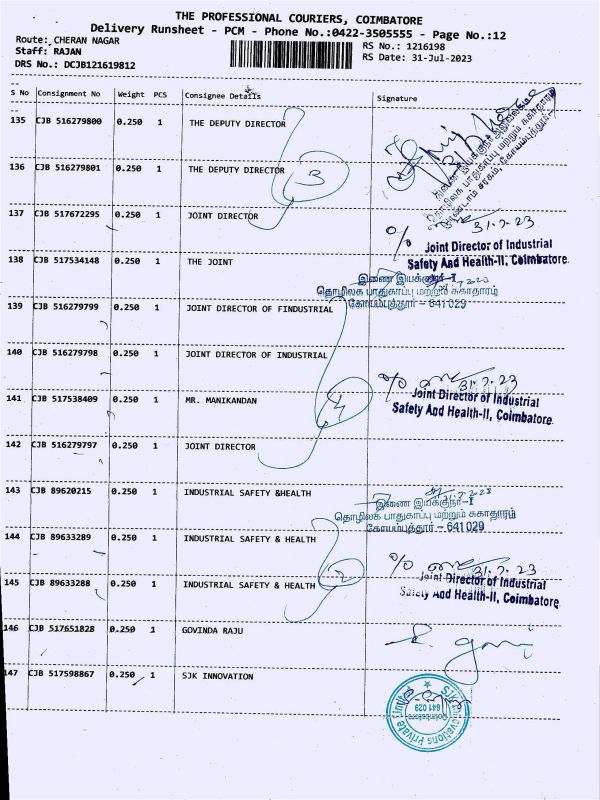 THE PROFESSIONAL COURIERS, COIMBATORE
Delivery Runsheet - PCM - Phone No.:0422-3505555 - Page No.:12
Route: CHERAN NAGAR
Staff: RAJAN
DRS No.: DCJB121619812
RS No.: 1216198
RS Date: 31-Jul-2023
S No Consignment No Weight PCS Consignee Details Signature
135 CJB 516279800 0.250 1 THE DEPUTY DIRECTOR
136 CJB 516279801 0.250 1 THE DEPUTY DIRECTOR 3
137 CJB 517672295 0.250 1 JOINT DIRECTOR
31-7-23
% Joint Director of Industrial
Safety And Health-II, Coimbatore.
138 CJB 517534148 0.250 1 THE JOINT
இணை இயக்குநர்-I
தொழிலக பாதுகாப்பு மற்றும் சுகாதாரம்
கோயம்புத்தூர் - 641 029
139 CJB 516279799 0.250 1 JOINT DIRECTOR OF FINDUSTRIAL
140 CJB 516279798 0.250 1 JOINT DIRECTOR OF INDUSTRIAL
% 31-7-23
141 CJB 517538409 0.250 1 MR. MANIKANDAN 4
Joint Director of Industrial
Safety And Health-II, Coimbatore.
142 CJB 516279797 0.250 1 JOINT DIRECTOR
143 CJB 89620215 0.250 1 INDUSTRIAL SAFETY &HEALTH
இணை இயக்குநர்-I
தொழிலக பாதுகாப்பு மற்றும் சுகாதாரம்
கோயம்புத்தூர் - 641 029
144 CJB 89633289 0.250 1 INDUSTRIAL SAFETY & HEALTH
% 31-7-23
145 CJB 89633288 0.250 1 INDUSTRIAL SAFETY & HEALTH
Joint Director of Industrial
Safety And Health-II, Coimbatore
146 CJB 517651828 0.250 1 GOVINDA RAJU
147 CJB 517598867 0.250 1 SJK INNOVATION
SJK Innovations Private Limited
Coimbatore
641 029